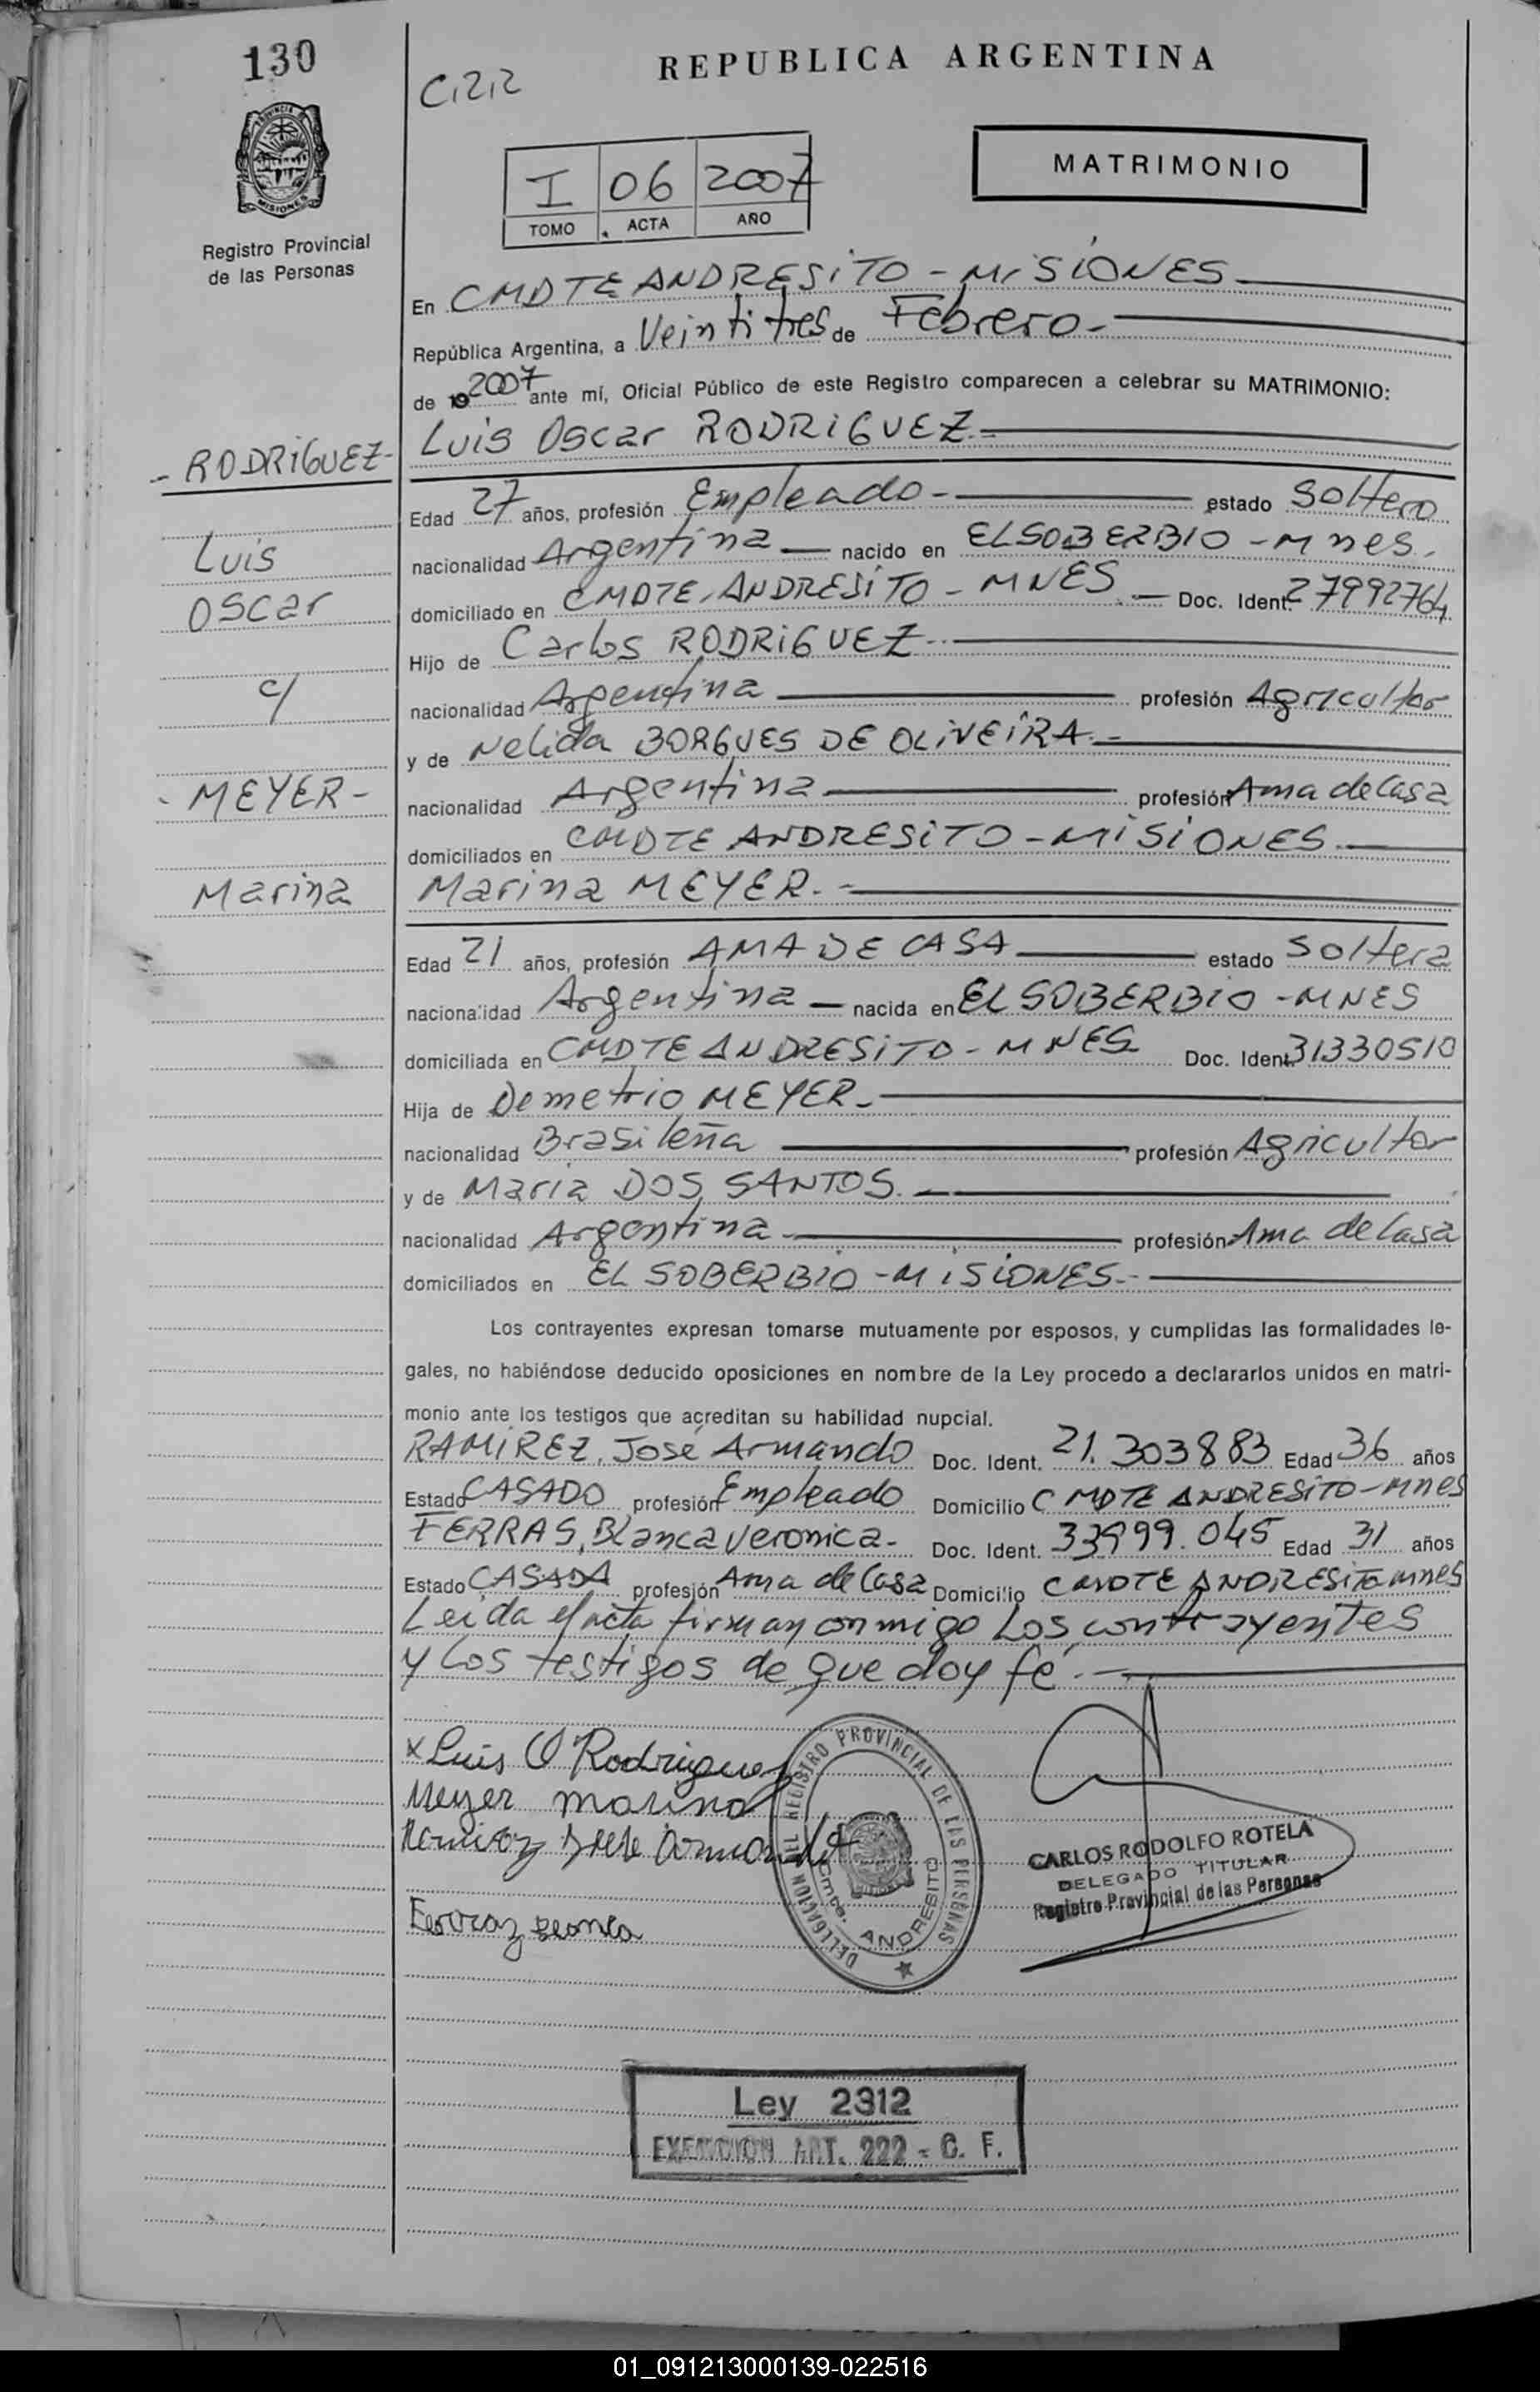 130
C.2.2
REPUBLICA ARGENTINA
PROVINCIA DE
MISIONES
Registro Provincial
de las Personas
MATRIMONIO
I 06 2007
TOMO ACTA AÑO
En CMDTE ANDRESiTO - MiSiONES
República Argentina, a Veintitres de Febrero.-
de 19 2007 ante mí, Oficial Público de este Registro comparecen a celebrar su MATRIMONIO:
- RODRiGUEZ-
Luis Oscar RODRiGUEZ.=
Edad 27 años, profesión Empleado - estado Soltero
Luis
nacionalidad Argentina — nacido en EL SOBERBIO - Mnes.
Oscar
domiciliado en CMDTE. ANDRESiTO - MNES. — Doc. Ident. 27992764
Hijo de Carlos RODRiGUEZ.-
c/
nacionalidad Argentina profesión Agricultor
y de Nelida BORGUES DE OLiVEiRA.-
- MEYER -
nacionalidad Argentina profesión Ama de Casa
domiciliados en CMDTE ANDRESiTO - MiSiONES.
Marina
Marina MEYER.-
Edad 21 años, profesión AMA DE CASA estado Soltera
nacionalidad Argentina — nacida en EL SOBERBiO - MNES
domiciliada en CMDTE ANDRESiTO - MNES Doc. Ident. 31330510
Hija de Demetrio MEYER.
nacionalidad Brasileña profesión Agricultor
y de Maria DOS SANTOS.-
nacionalidad Argentina profesión Ama de Casa
domiciliados en EL SOBERBIO - MiSiONES.-
Los contrayentes expresan tomarse mutuamente por esposos, y cumplidas las formalidades le-
gales, no habiéndose deducido oposiciones en nombre de la Ley procedo a declararlos unidos en matri-
monio ante los testigos que acreditan su habilidad nupcial.
RAMiREZ, José Armando Doc. Ident. 21.303883 Edad 36 años
Estado CASADO profesión Empleado Domicilio CMDTE ANDRESiTO - Mnes
FERRAS, Blanca Veronica - Doc. Ident. 33999.045 Edad 31 años
Estado CASADA profesión Ama de Casa Domicilio CMDTE ANDRESiTO mnes
Leida el acta firman conmigo Los contrayentes
y Los testigos de que doy fé.-
x Luis O Rodriguez
Meyer marina
Ramirez Jose Armando
Ferraz blanca
DELEGACION DEL REGISTRO PROVINCIAL DE LAS PERSONAS
Cmte. ANDRESITO
CARLOS RODOLFO ROTELA
DELEGADO TITULAR
Registro Provincial de las Personas
Ley 2312
EXENCION ART. 222 - C. F.
01_091213000139-022516